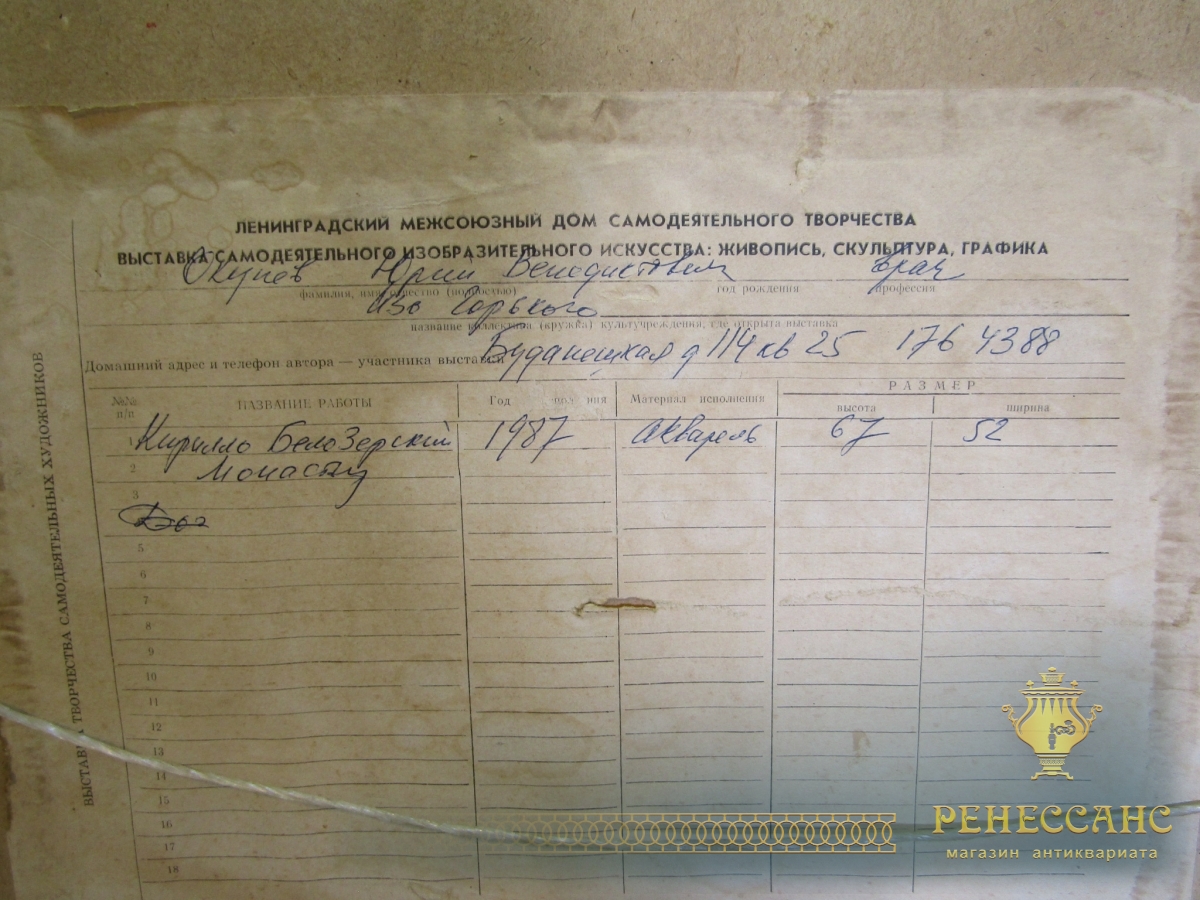 ЛЕНИНГРАДСКИЙ МЕЖСОЮЗНЫЙ ДОМ САМОДЕЯТЕЛЬНОГО ТВОРЧЕСТВА
ВЫСТАВКА САМОДЕЯТЕЛЬНОГО ИЗОБРАЗИТЕЛЬНОГО ИСКУССТВА: ЖИВОПИСЬ, СКУЛЬПТУРА, ГРАФИКА
Юрий Бенедиктович врач
фамилия, имя, отчество (полностью) год рождения профессия
Изо Горького
название коллектива (кружка) культучреждения, где открыта выставка
Домашний адрес и телефон автора — участника выставки Будапештская д 114 кв 25 176 4388
ВЫСТАВКА ТВОРЧЕСТВА САМОДЕЯТЕЛЬНЫХ ХУДОЖНИКОВ
№№ п/п НАЗВАНИЕ РАБОТЫ Год Материал исполнения РАЗМЕР
высота ширина
1 Кирилло БелоЗерский 1987 акварель 67 52
2 Монастырь
3
5
6
7
8
9
10
11
12
13
14
15
16
17
18
РЕНЕССАНС
магазин антиквариата